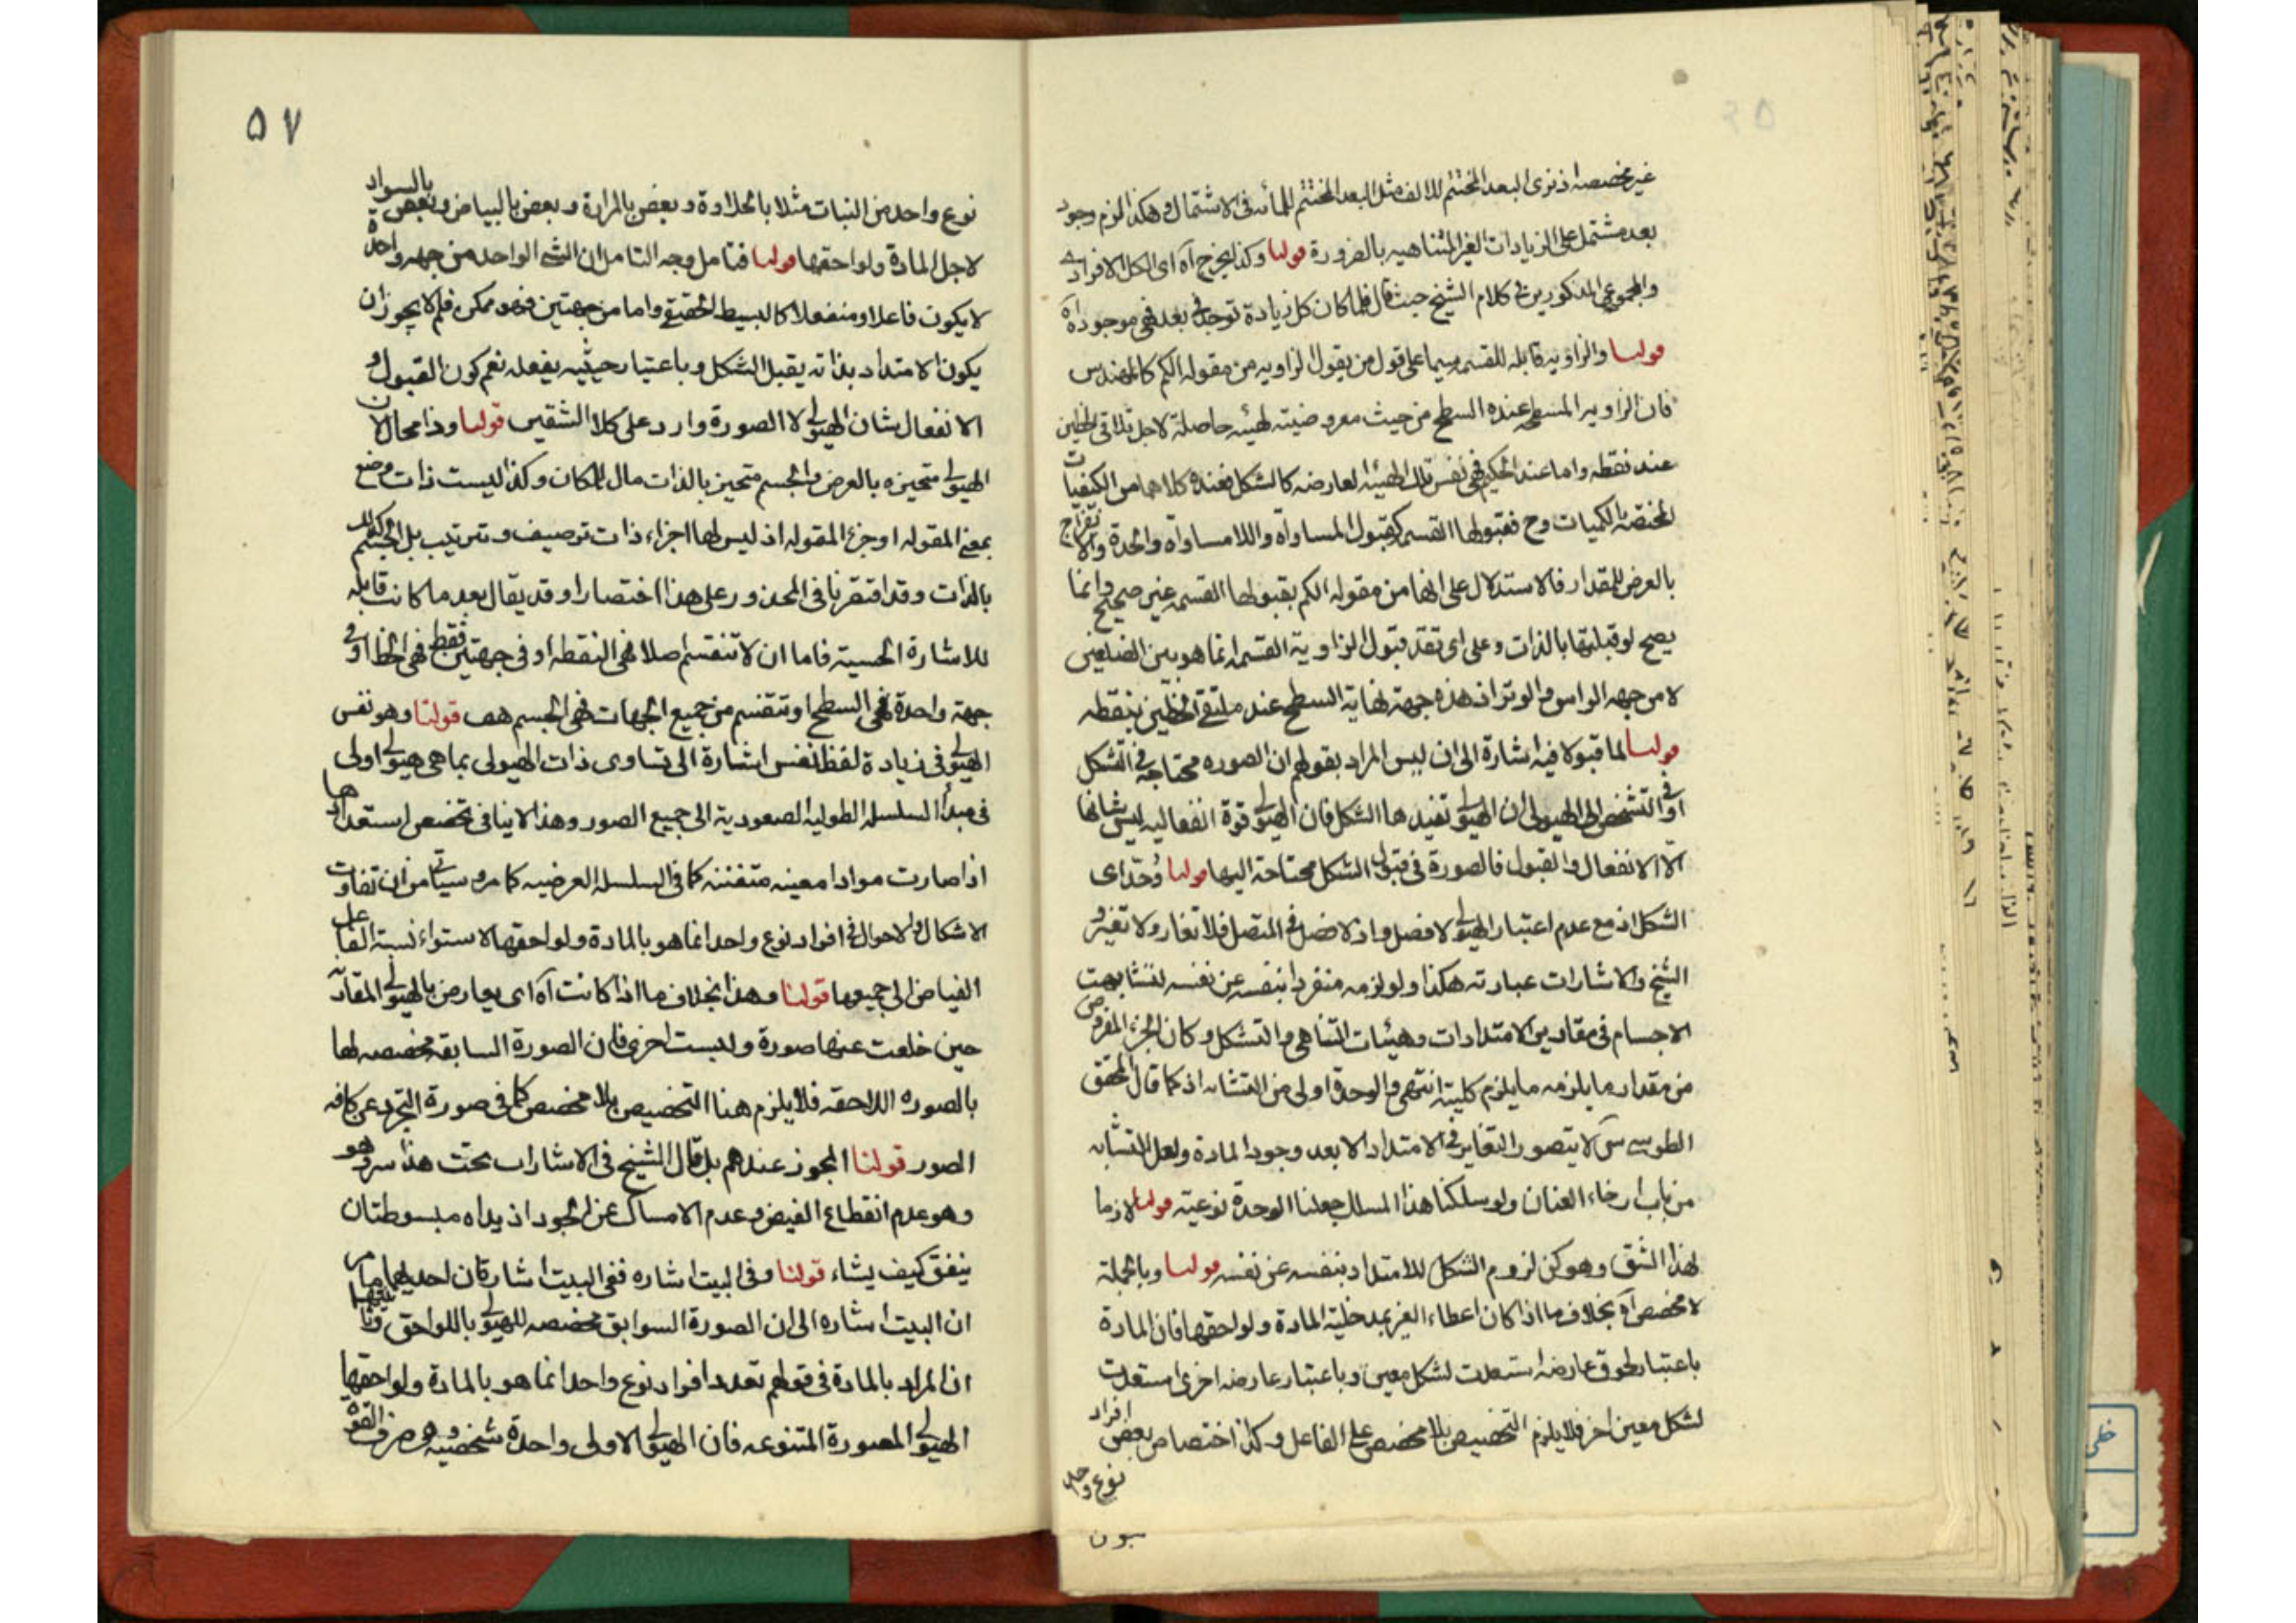 غير مخصصه اذ نرى البعد المختتم للالف مثل البعد المختتم للمأت فى الاشتمال وهكذا لزم وجود
بعد مشتمل على الزيادات الغير المتناهيه بالضرورة قولنا وكذا يخرج آه اى الكل الافرادى
والمجموعى المذكورين فى كلام الشيخ حيث قال فلما كان كل زيادة توجد فى بعد فهى موجودة آه
قولنا والزاويه قابله للقسمه سيما على قول من يقول الزاويه من مقوله الكم كالمهندس
فان الزاويه المسطحه عنده السطح من حيث معروضيته لهيئه حاصلة لاجل تلاقى الخطين
عند نقطه واما عند الحكيم فهى نفس تلك الهيئه العارضه كالشكل فعنده كلاهما من الكيفيات
المختصة بالكميات وح فقبولها القسمه كقبول المساواة واللامساواة والحدة والانفراج
بالعرض للمقدار فالاستدلال على انها من مقوله الكم بقبولها القسمه غير صحيح وانما
يصح لو قبلتها بالذات وعلى اى تقدير قبول الزاوية القسمه انما هو بين الضلعين
لا من جهه الراس والوتر اذ هذه جهة نهاية السطح عند ملتقى الخطين بنقطه
قولنا لما قبولا فيه اشارة الى ان ليس المراد بقولهم ان الصوره محتاجة فى الشكل
او فى التشخص الى الهيولى ان الهيولى تفيدها الشكل فان الهيولى قوة انفعاليه ليس شانها
الّا الانفعال والقبول فالصورة فى قبول الشكل محتاجة اليها قولنا وُحّد اى
الشكل اذ مع عدم اعتبار الهيولى لا فصل واذ لا فصل فى المتصل فلا تغاير ولا تغير و
الشيخ والاشارات عبارته هكذا ولو لزمه منفردا بنفسه عن نفسه لتشابهت
الاجسام فى مقادير الامتدادات وهيئات التناهى والتشكل وكان الجزء المفروض
من مقدار ما يلزمه ما يلزم كليته انتهى والوحدة اولى من التشابه اذ كما قال المحقق
الطوسى س لا يتصور التغاير فى الامتداد الا بعد وجود المادة ولعل التشابه
من باب ارخاء العنان ولو سلكنا هذا المسلك جعلنا الوحدة نوعية قولنا لازما
لهذا الشق وهو كون لزوم الشكل للامتداد بنفسه عن نفسه قولنا وبالجملة
لا مخصص آه بخلاف ما اذا كان اعطاء الغير بمدخلية المادة ولواحقها فان المادة
باعتبار لحوق عارضه استعدت لشكل معين وباعتبار عارضه اخرى استعدت
لشكل معين اخر فلا يلزم التخصيص بلا مخصص على الفاعل وكذا اختصاص بعض افراد
نوع واحد
۵۷
نوع واحد من النبات مثلا بالحلاوة وبعض بالمرارة وبعض بالبياض وبعض بالسواد
لاجل المادة ولواحقها قولنا فتامل وجه التامل ان الشئ الواحد من جهه واحدة
لا يكون فاعلا ومنفعلا كالبسيط الحقيقى واما من جهتين فهو ممكن فلم لا يجوز ان
يكون الامتداد بذاته يقبل الشكل وباعتبار حيثيه يفعله نعم كون القبول و
الانفعال شان الهيولى لا الصورة وارد على كلا الشقين قولنا وذا محال لان
الهيولى متحيزه بالعرض والجسم متحيز بالذات مال للمكان وكذا ليست ذات وضع
بمعنى المقوله او جزء المقوله اذ ليس لها اجزاء ذات ترصيف وترتيب بل الجسم كذلك
بالذات وقد اقتصرنا فى المحذور على هذا اختصارا وقد يقال بعد ما كانت قابله
للاشارة الحسية فاما ان لا تنقسم اصلا فهى النقطه او فى جهتين فقط فهى الخط او فى
جهة واحدة فهى السطح او تنقسم من جميع الجهات فهى الجسم هف قولنا وهو نفس
الهيولى فى زيادة لفظ نفس اشارة الى تساوى ذات الهيولى بما هى هيولى اولى
فى مبدأ السلسله الطوليه الصعودية الى جميع الصور وهذا لا ينافى تخصص استعدادها
اذا صارت موادا معينه متفننه كما فى السلسله العرضيه كما مر وسيأتى من ان تفاوت
الاشكال والاحوال فى افراد نوع واحد انما هو بالمادة ولواحقها لاستواء نسبة الفاعل
الفياض الى جميعها قولنا وهذا بخلاف ما اذا كانت آه اى يعارض بالهيولى المقارنة
حين خلعت عنها صورة ولبست اخرى فان الصورة السابقه مخصصه لها
بالصوره اللاحقه فلا يلزم هنا التخصيص بلا مخصص كما فى صورة التجرد عن كافه
الصور قولنا المجوز عندهم بل قال الشيخ فى الاشارات تحت هذا سر وهو
وهو عدم انقطاع الفيض وعدم الامساك عن الجود اذ يداه مبسوطتان
ينفق كيف يشاء قولنا وفى البيت اشاره ففى البيت اشارتان احديهما ما مر
ان البيت اشاره الى ان الصورة السوابق مخصصه للهيولى باللواحق وثانيتها
ان المراد بالمادة فى قولهم تعدد افراد نوع واحد انما هو بالمادة ولواحقها
الهيولى المصورة المتنوعه فان الهيولى الاولى واحدة شخصيه وهى صرف القوة